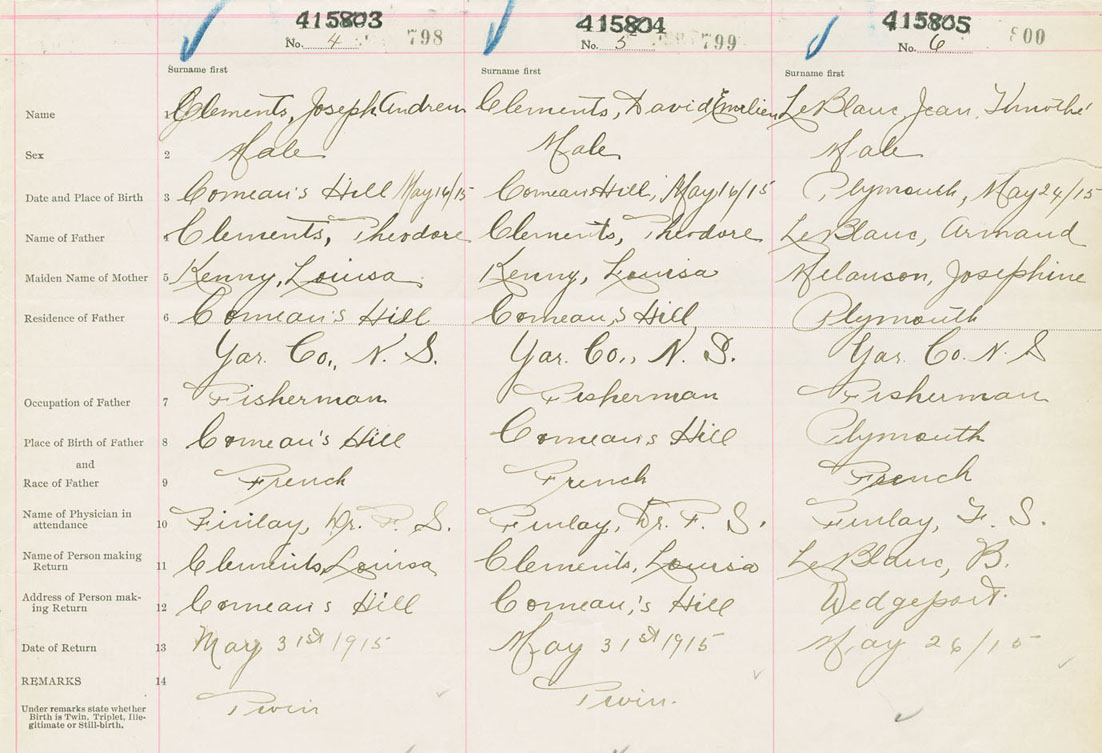 415803 415804 415805
No. 4 798 No. 5 799 No. 6 800
Surname first Surname first Surname first
Name 1 Clements, Joseph Andrew Clements, David Emelien LeBlanc, Jean, Timothé
Sex 2 Male Male Male
Date and Place of Birth 3 Comeau's Hill May 16/15 Comeau's Hill, May 16/15 Plymouth, May 24/15
Name of Father 4 Clements, Theodore Clements, Theodore LeBlanc, Armand
Maiden Name of Mother 5 Kenny, Louisa Kenny, Louisa Melanson, Josephine
Residence of Father 6 Comeau's Hill Comeau's Hill Plymouth
Yar. Co., N. S. Yar. Co., N. S. Yar. Co. N. S
Occupation of Father 7 Fisherman Fisherman Fisherman
Place of Birth of Father 8 Comeau's Hill Comeau's Hill Plymouth
and
Race of Father 9 French French French
Name of Physician in
attendance 10 Finlay, Dr. F. S. Finlay, Dr. F. S. Finlay, F. S.
Name of Person making
Return 11 Clements, Louisa Clements, Louisa LeBlanc, B.
Address of Person mak-
ing Return 12 Comeau's Hill Comeau's Hill Wedgeport.
Date of Return 13 May 31st 1915 May 31st 1915 May 26/15
REMARKS 14
Twin Twin.
Under remarks state whether
Birth is Twin, Triplet, Ille-
gitimate or Still-birth.